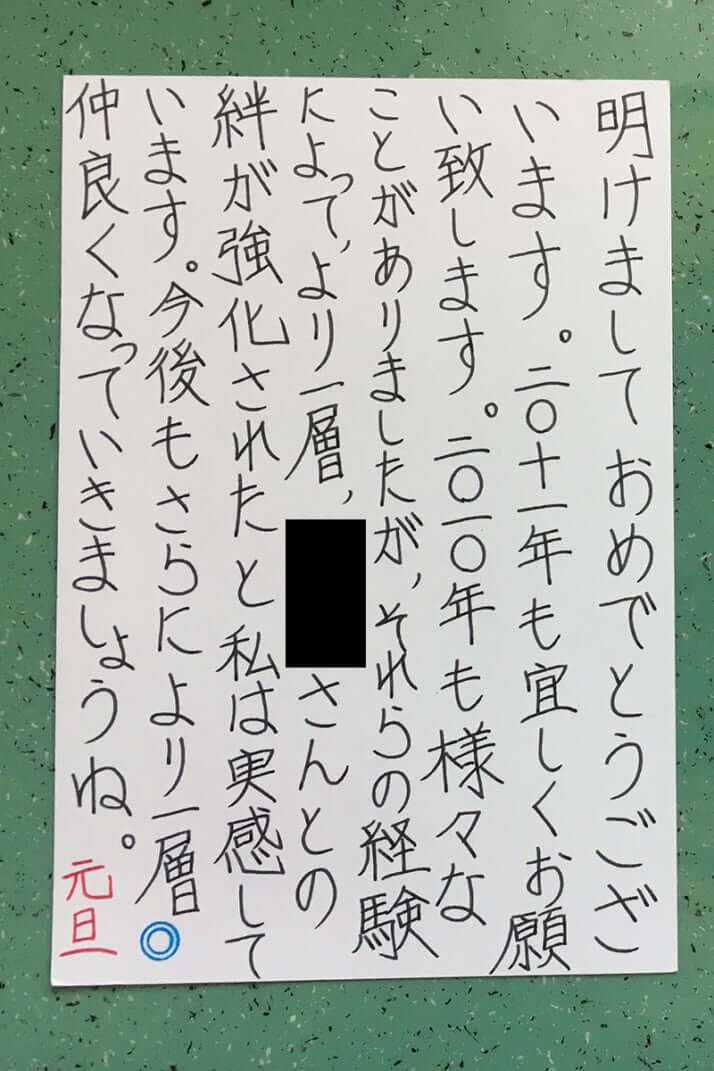 明けましておめでとうござ
います。二〇十一年も宜しくお願
い致します。二〇一〇年も様々な
ことがありましたが,それらの経験
によって,より一層,さんとの
絆が強化されたと私は実感して
います。今後もさらにより一層◎
仲良くなっていきましょうね。
元旦